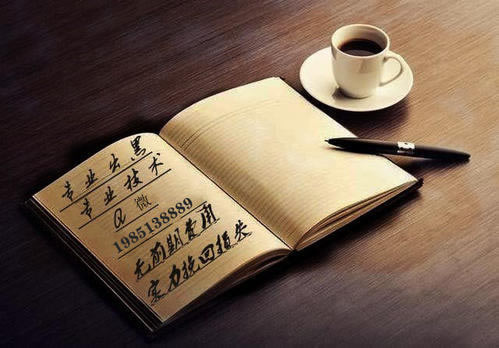 专业出黑
专业技术
@微
1985138889
无前期费用
实力挽回损失